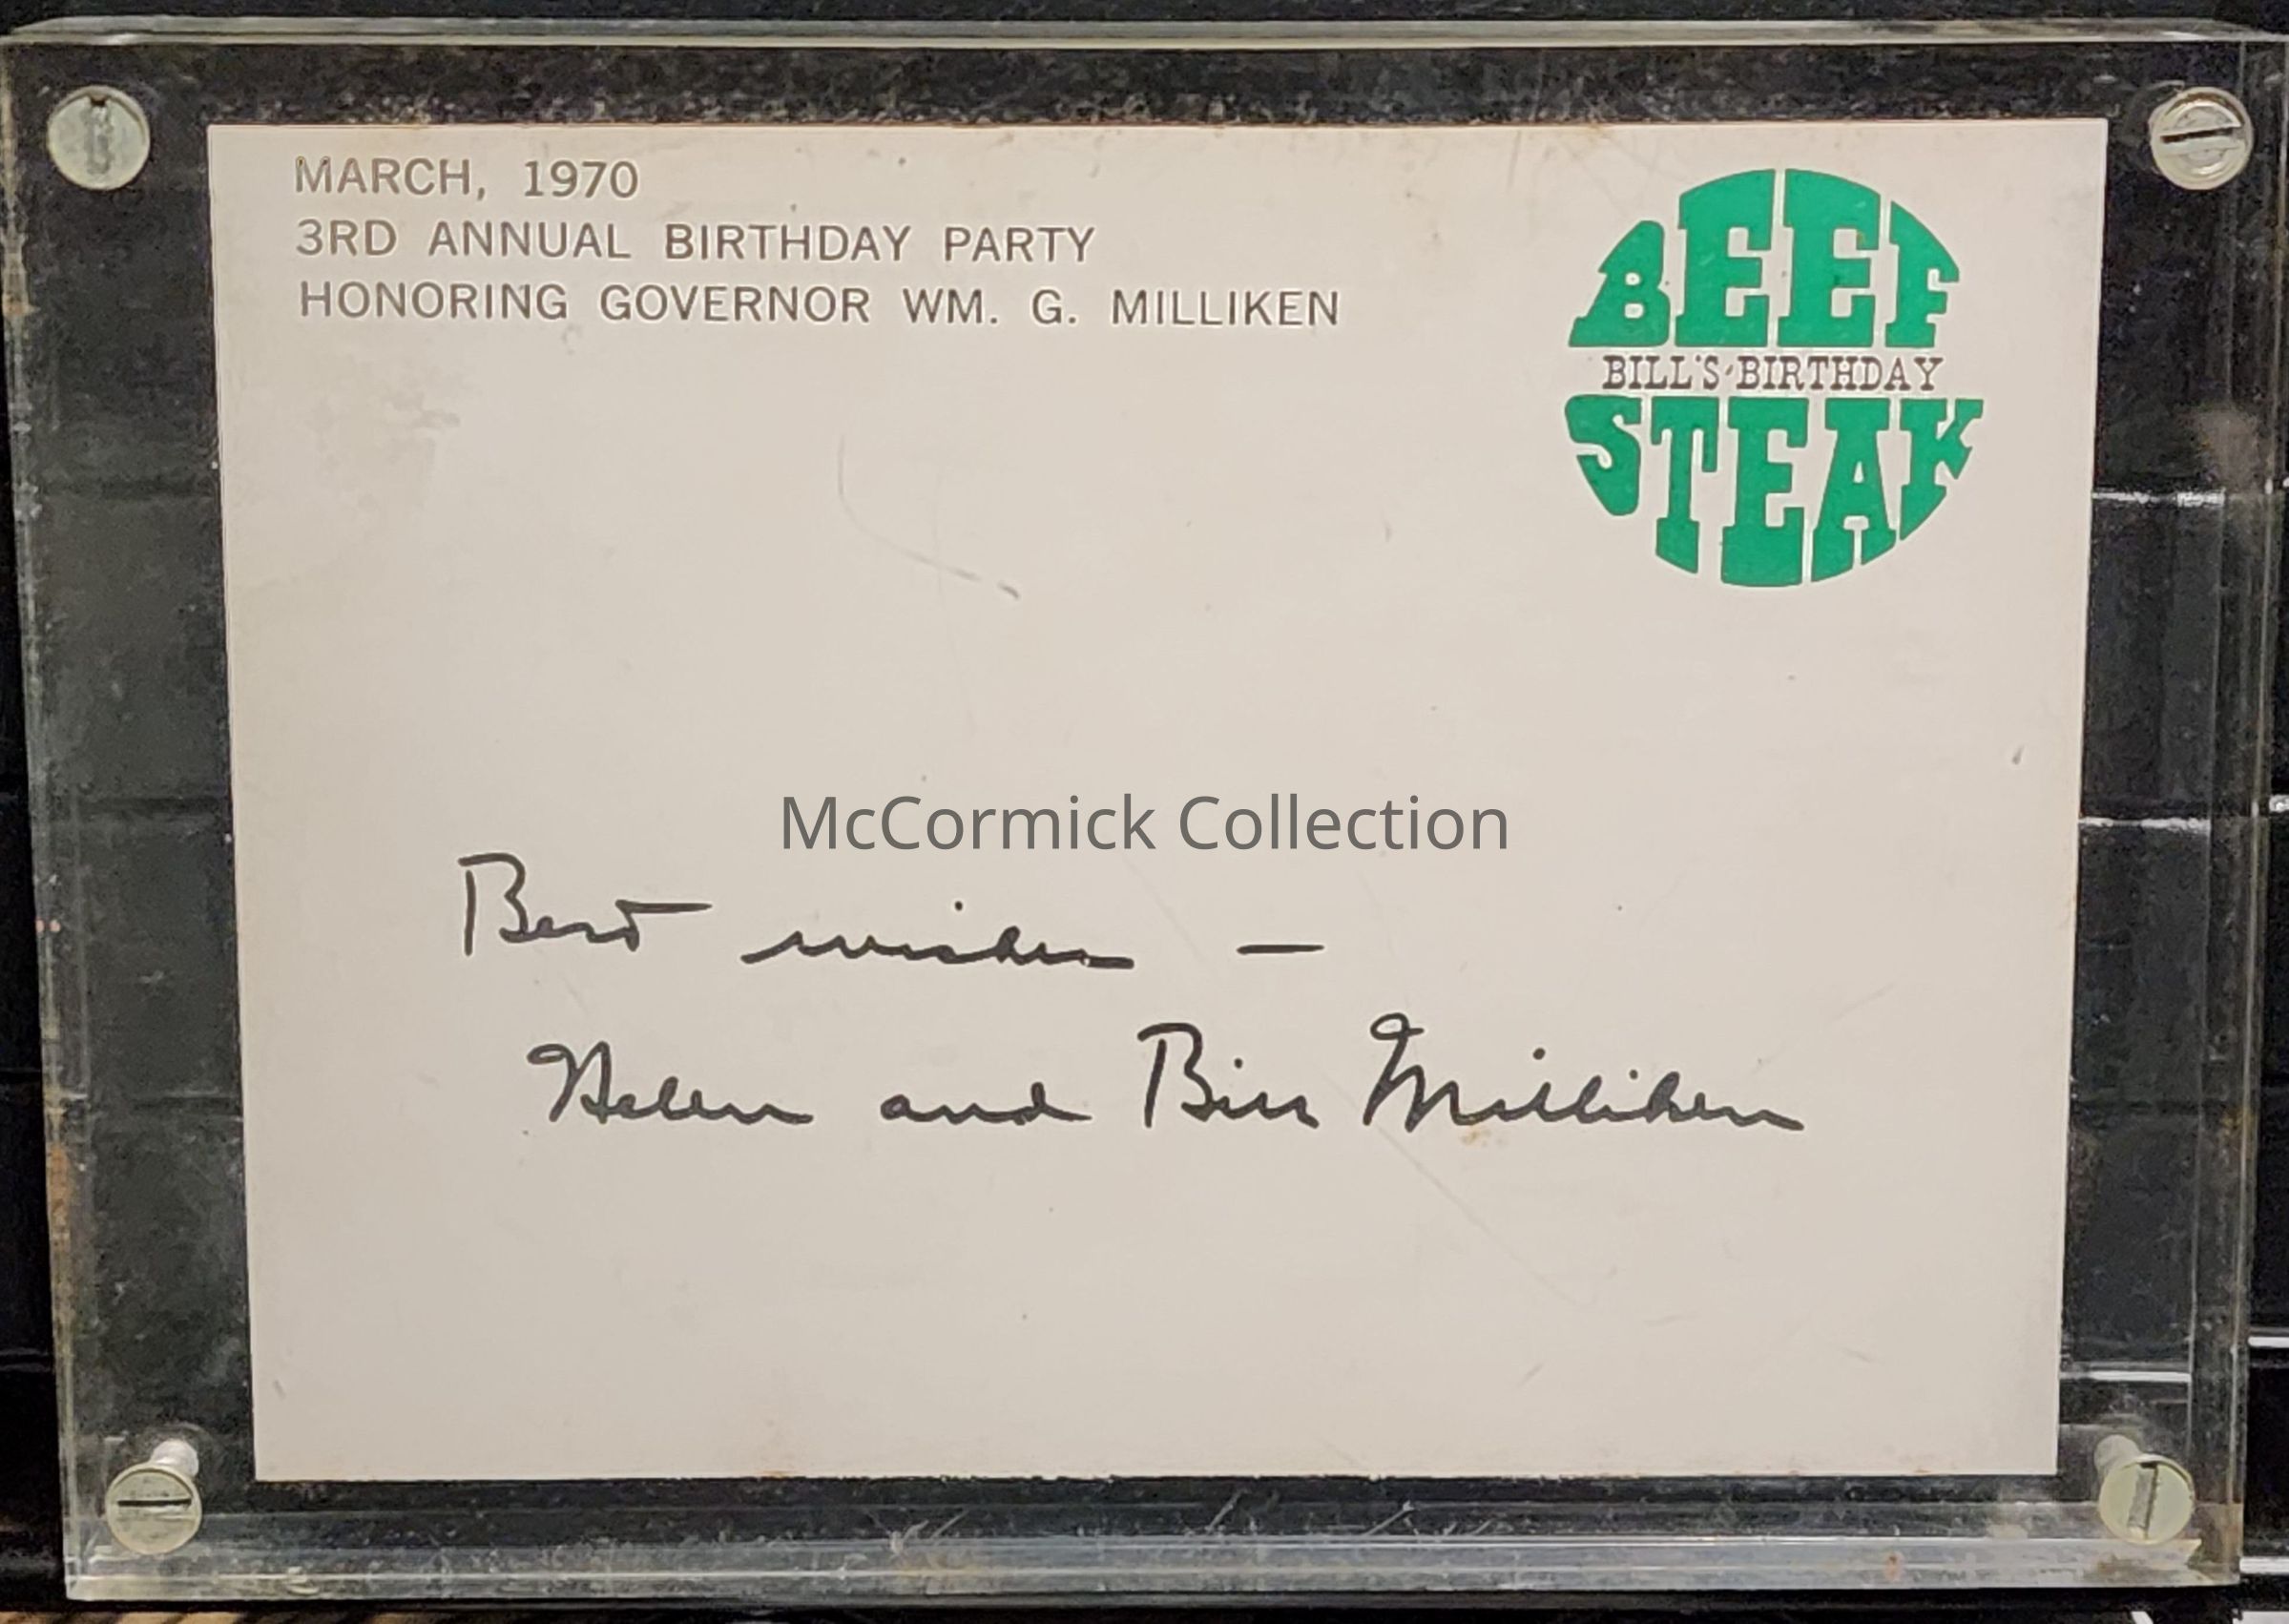 MARCH, 1970
3RD ANNUAL BIRTHDAY PARTY
HONORING GOVERNOR WM. G. MILLIKEN
BEEF
BILL'S BIRTHDAY
STEAK
McCormick Collection
Best wishes —
Helen and Bill Milliken